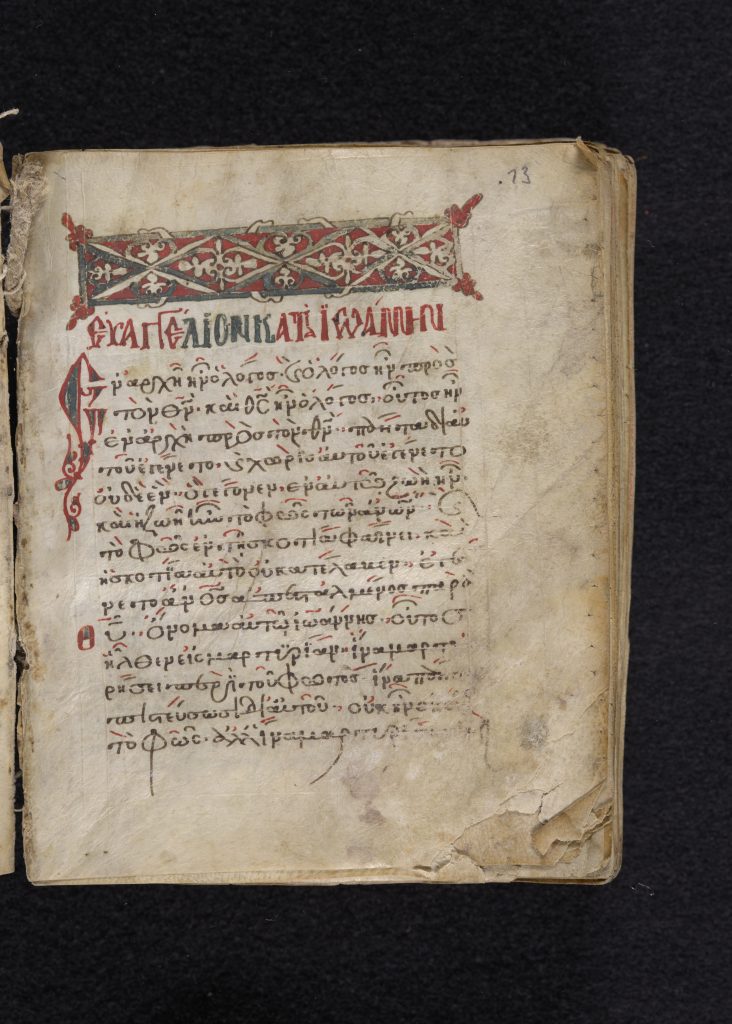 .13
ΕΥΑΓΓΕΛΙΟΝ ΚΑΤΑ ΙΩΑΝΝΗΝ
Ἐν ἀρχῆ ἦν ὁ λόγος· καὶ ὁ λόγος ἦν πρὸς
τὸν θν̄· καὶ θς̄ ἦν ὁ λόγος· οὗτος ἦν
ἐν ἀρχῆ πρὸς τὸν θν̄· πάντα δι' αὐ
τοῦ ἐγένετο· καὶ χωρὶς αὐτοῦ ἐγένετο
οὐδὲ ἕν· ὃ γέγονεν· ἐν αὐτῶ ζωὴ ἦν·
καὶ ἡ ζωὴ ἦν τὸ φῶς τῶν ἀνων̄· καὶ
τὸ φῶς ἐν τῆ σκοτία φαίνει· καὶ
ἡ σκοτία αὐτὸ οὐ κατέλαβεν· ἐγέ
νετο ἀνος̄ ἀπεσταλμένος παρὰ
θῡ· ὄνομα αὐτῶ ἰωάννης· οὗτος
ἦλθεν εἰς μαρτυρίαν· ἵνα μαρτυ
ρήσει περὶ τοῦ φωτὸς· ἵνα πάντες
πιστεύσωσι δι' αὐτοῦ· οὐκ ἦν ἐκεῖνος
τὸ φῶς· ἀλλ' ἵνα μαρτυρήσει